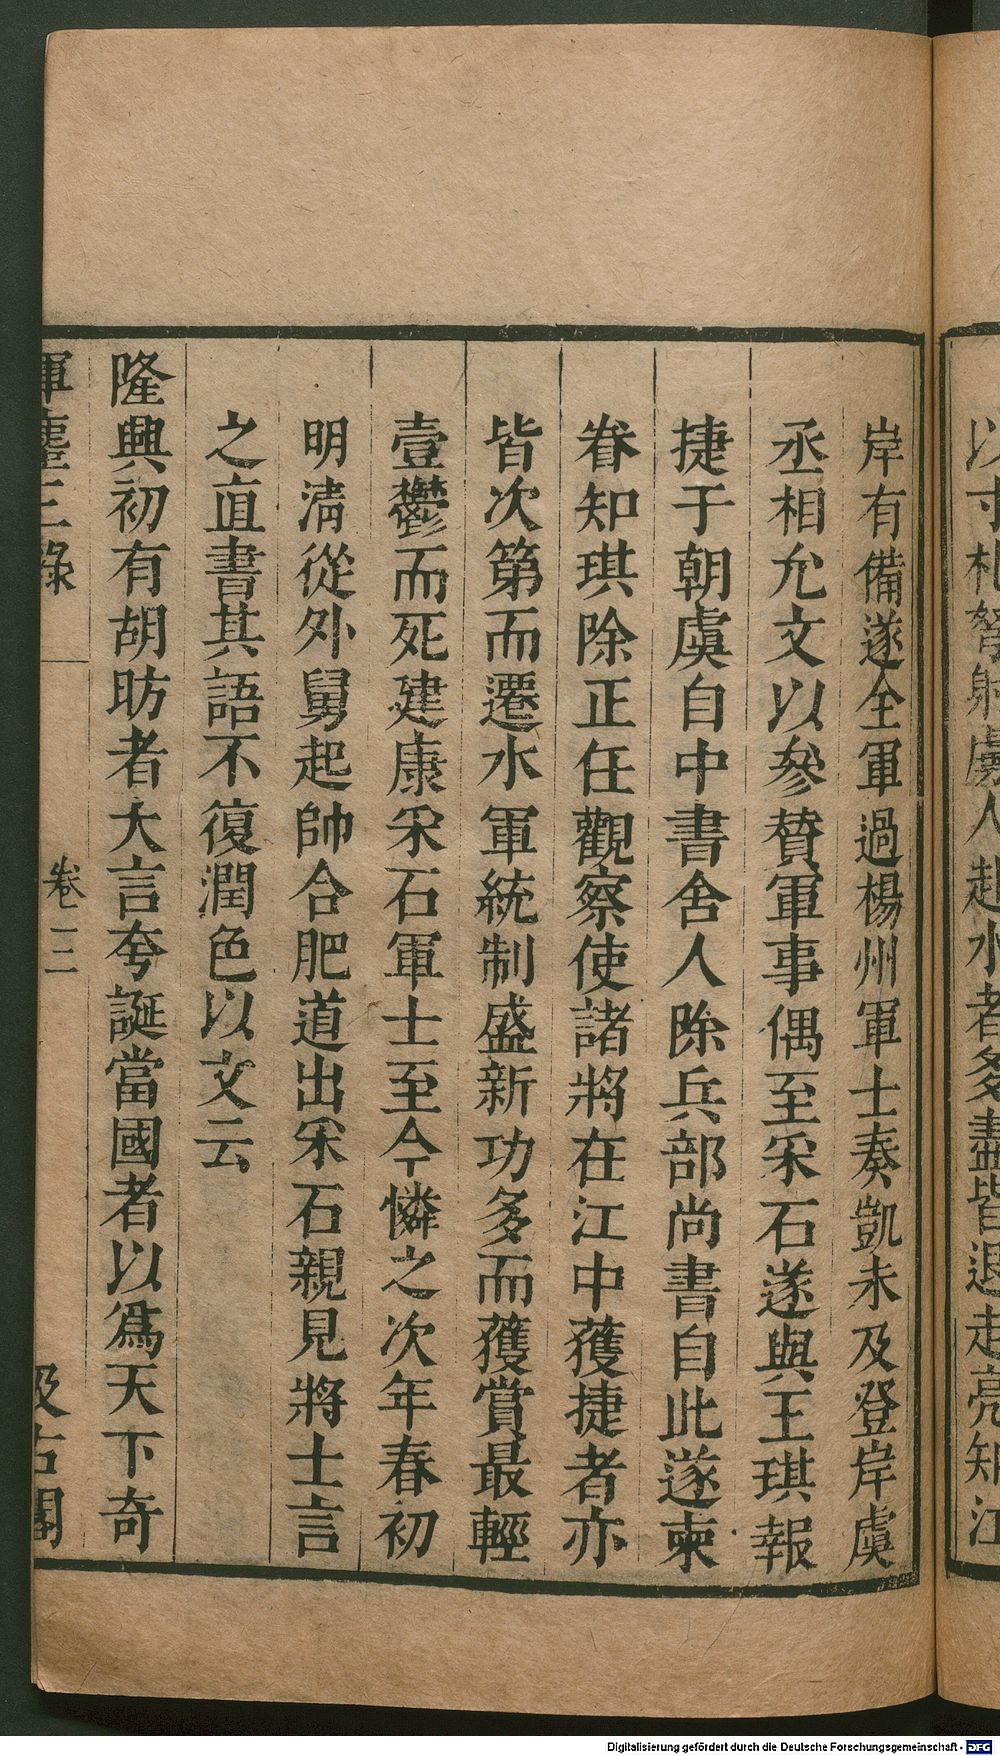 岸有備遂全軍過楊州軍士奏凱未及登岸虞
丞相允文以參賛軍事偶至采石遂與王琪報
捷于朝虞自中書舍人除兵部尚書自此遂柬
眷知琪除正任觀察使諸將在江中獲捷者亦
皆次第而遷水軍統制盛新功多而獲賞最輕
壹鬱而死建康采石軍士至今憐之次年春初
明淸從外舅起帥合肥道出采石親見將士言
之直書其語不復潤色以文云
隆興初有胡昉者大言夸誕當國者以爲天下奇
揮麈三錄
卷三
汲古閣
以寸札弩射虜人赴水者多盡皆退走亮知江
Digitalisierung gefördert durch die Deutsche Forschungsgemeinschaft - DFG